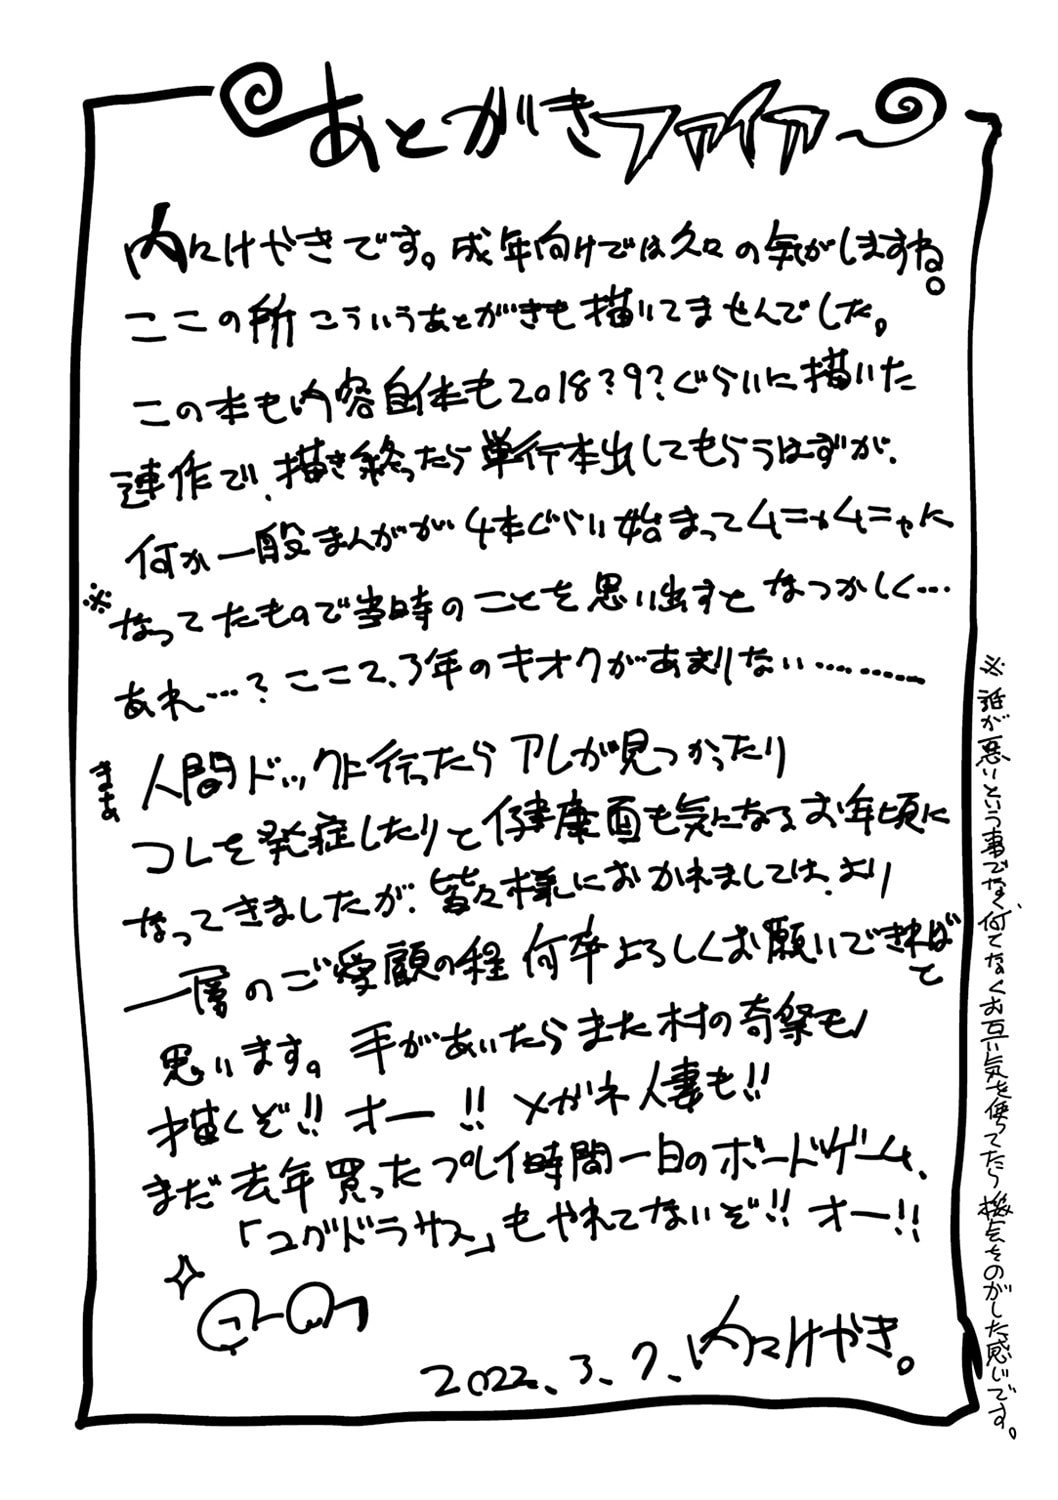 あとがきファイア
内々けやきです。成年向けでは久々の気がしますね。
ここの所こういうあとがきも描いてませんでした。
この本も内容自体も2018?9?ぐらいに描いた
連作で、描き終ったら単行本出してもらうはずが、
何か一般まんがが4本ぐらい始まってムニャムニャに
※なってたもので当時のことを思い出すとなつかしく…
あれ…?ここ2、3年のキオクがあまりない………
まぁ人間ドックに行ったらアレが見つかったり
コレを発症したりと健康面も気になるお年頃に
なってきましたが、皆々様におかれましては、より
一層のご愛顧の程何卒よろしくお願いできればと
思います。手があいたらまた村の奇祭モノ
描くぞ!!オー!!メガネ人妻も!!
まだ去年買ったプレイ時間一日のボードゲーム、
「ユグドラサス」もやれてないぞ!!オー!!
2022.3.7.内々けやき。
※誰が悪いという事でなく何てなくお互い気を使ってたら機会をのがした感じです。